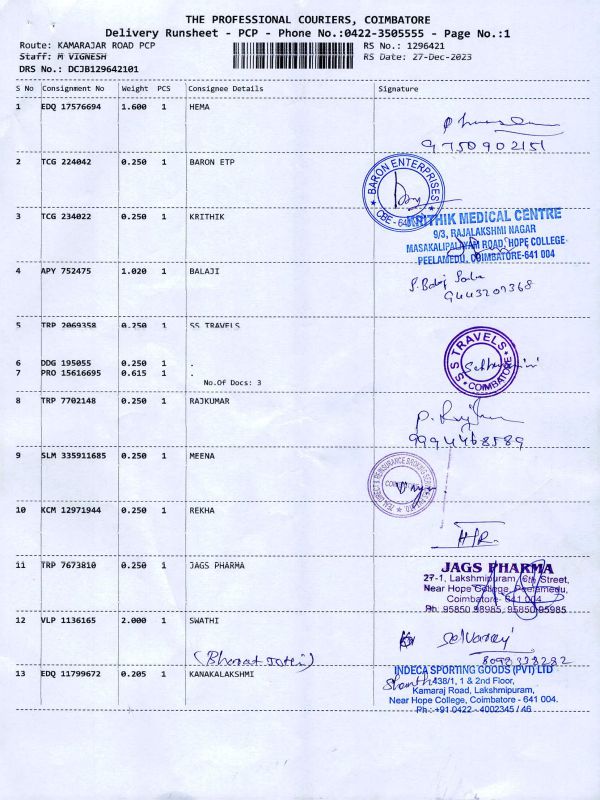 THE PROFESSIONAL COURIERS, COIMBATORE
Delivery Runsheet - PCP - Phone No.:0422-3505555 - Page No.:1
Route: KAMARAJAR ROAD PCP RS No.: 1296421
Staff: M VIGNESH RS Date: 27-Dec-2023
DRS No.: DCJB129642101
S No Consignment No Weight PCS Consignee Details Signature
1 EDQ 17576694 1.600 1 HEMA
9750902151
2 TCG 224042 0.250 1 BARON ETP
BARON ENTERPRISES
3 TCG 234022 0.250 1 KRITHIK
KRITHIK MEDICAL CENTRE
9/3, RAJALAKSHMI NAGAR
MASAKALIPALAYAM ROAD, HOPE COLLEGE
PEELAMEDU, COIMBATORE-641 004
4 APY 752475 1.020 1 BALAJI
9443207368
5 TRP 2069358 0.250 1 SS TRAVELS
S S TRAVELS
COIMBATORE
6 DDG 195055 0.250 1 .
7 PRO 15616695 0.615 1 .
No.Of Docs: 3
8 TRP 7702148 0.250 1 RAJKUMAR
9994468589
9 SLM 335911685 0.250 1 MEENA
10 KCM 12971944 0.250 1 REKHA
11 TRP 7673810 0.250 1 JAGS PHARMA
JAGS PHARMA
27-1, Lakshmipuram, 6th Street,
Near Hope College, Peelamedu,
Coimbatore- 641 004
Ph. 95850 98985, 95850 95985
12 VLP 1136165 2.000 1 SWATHI
Selvaraj
8098338282
13 EDQ 11799672 0.205 1 KANAKALAKSHMI
INDECA SPORTING GOODS (PVT) LTD
438/1, 1 & 2nd Floor,
Kamaraj Road, Lakshmipuram,
Near Hope College, Coimbatore - 641 004.
Ph : +91 0422 - 4002345 / 46